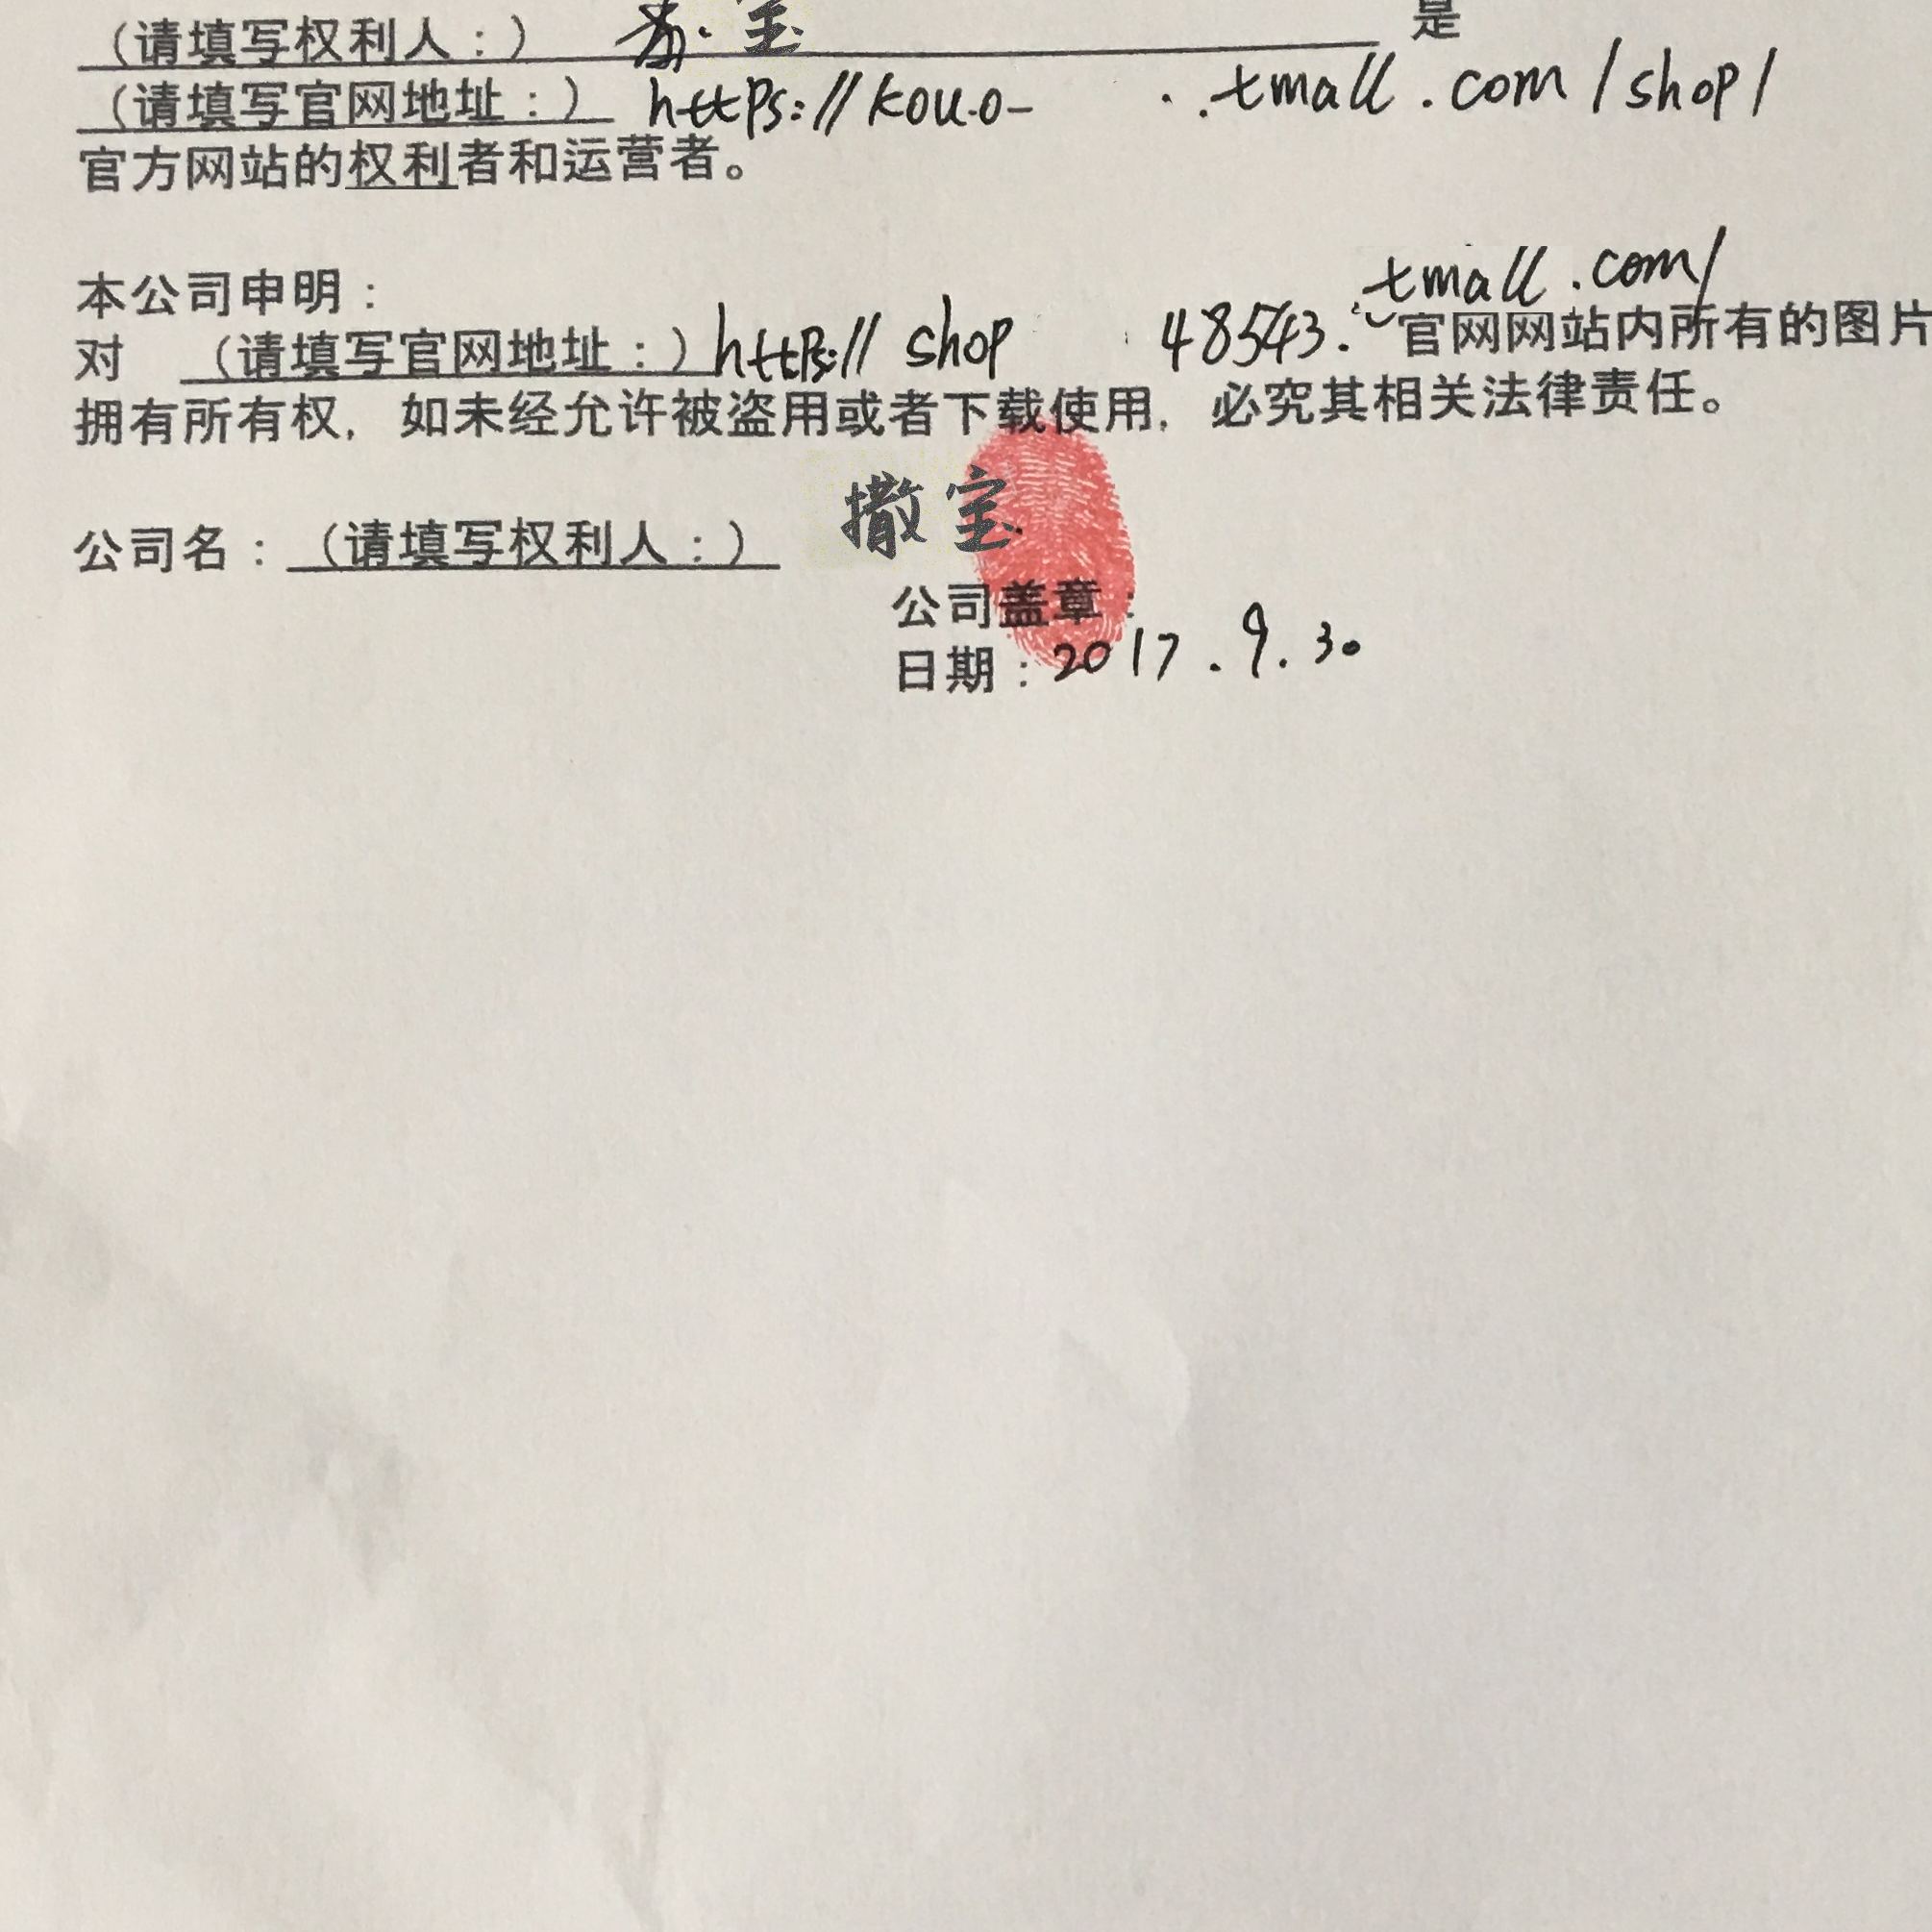 （请填写权利人：） 宝 是
（请填写官网地址：） https://kou.o- .tmall.com/shop/
官方网站的权利者和运营者。
本公司申明：
tmall.com/
对 （请填写官网地址：）https:// shop 48543. 官网网站内所有的图片
拥有所有权，如未经允许被盗用或者下载使用，必究其相关法律责任。
公司名：（请填写权利人：） 撒宝
公司盖章：
日期：2017.9.30